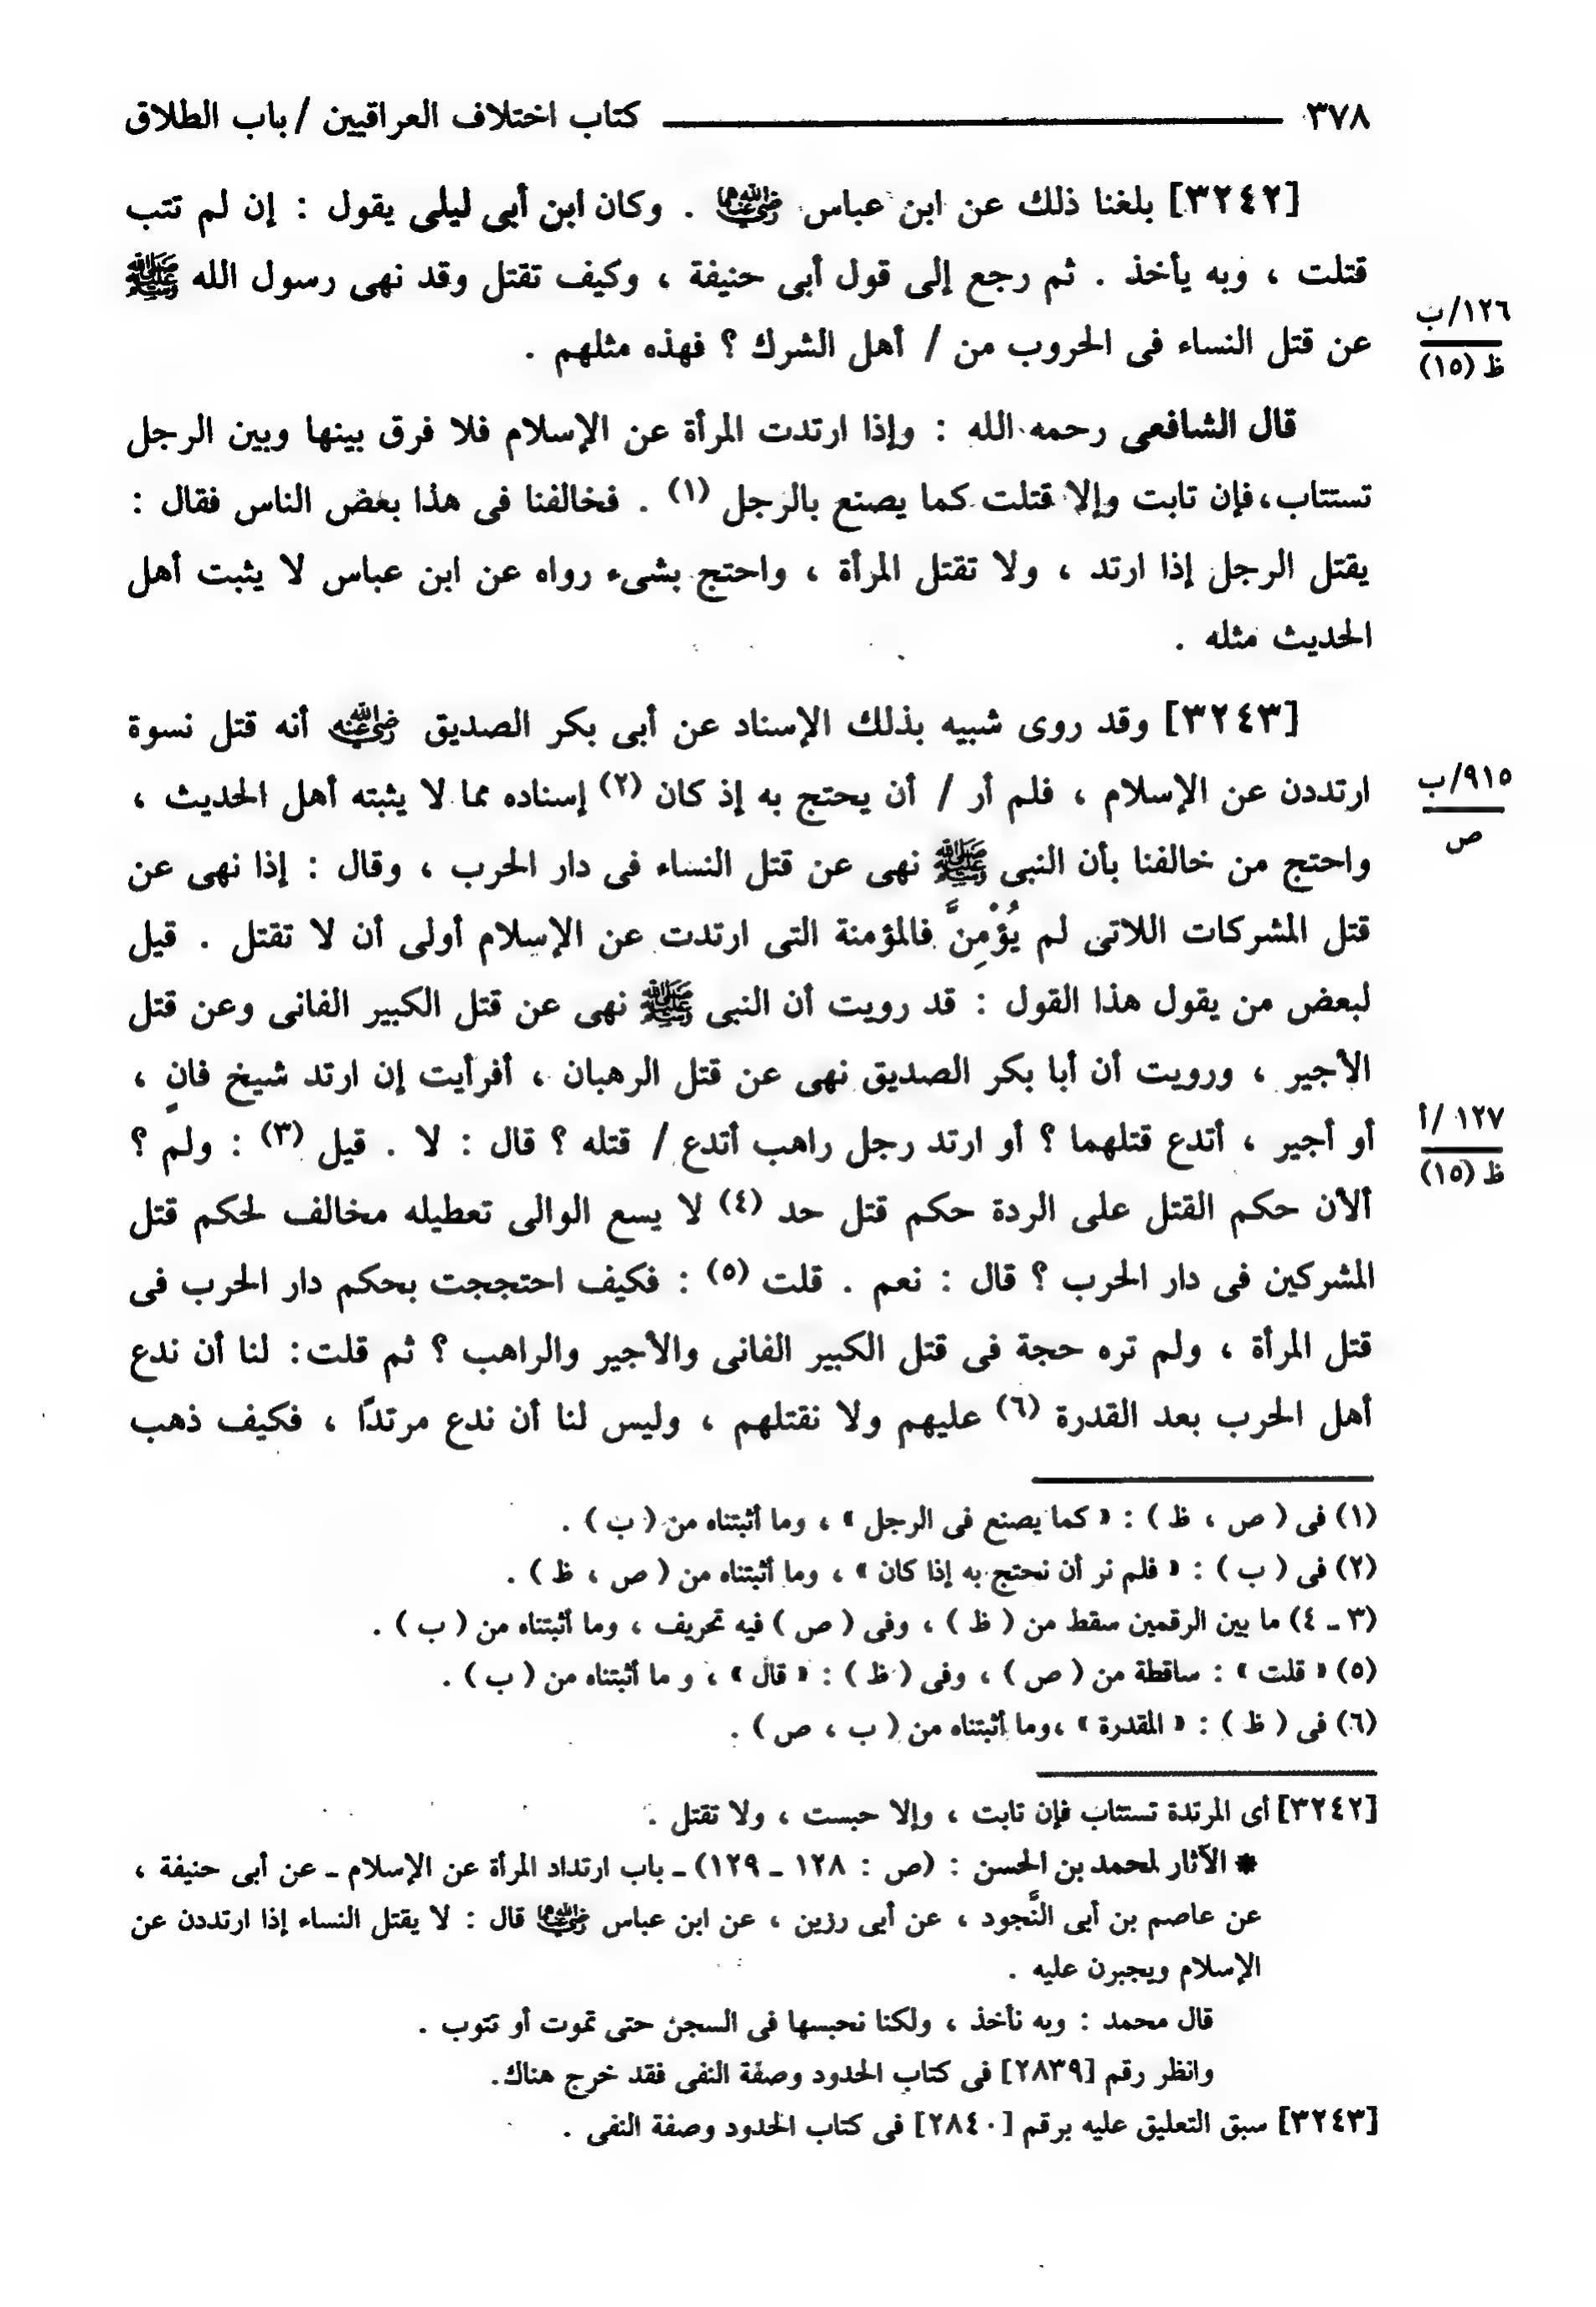 ٣٧٨ كتاب اختلاف العراقيين / باب الطلاق
[٣٢٤٢] بلغنا ذلك عن ابن عباس رضي الله عنهما . وكان ابن أبى ليلى يقول : إن لم تتب
قتلت ، وبه يأخذ . ثم رجع إلى قول أبى حنيفة ، وكيف تقتل وقد نهى رسول الله ﷺ
١٢٦/ب
ظ (١٥)
عن قتل النساء فى الحروب من / أهل الشرك ؟ فهذه مثلهم .
قال الشافعى رحمه الله : وإذا ارتدت المرأة عن الإسلام فلا فرق بينها وبين الرجل
تستتاب، فإن تابت وإلا قتلت كما يصنع بالرجل (١) . فخالفنا فى هذا بعض الناس فقال :
يقتل الرجل إذا ارتد ، ولا تقتل المرأة ، واحتج بشىء رواه عن ابن عباس لا يثبت أهل
الحديث مثله .
[٣٢٤٣] وقد روى شبيه بذلك الإسناد عن أبى بكر الصديق رضي الله عنه أنه قتل نسوة
٩١٥/ب
ص
ارتددن عن الإسلام ، فلم أر / أن يحتج به إذ كان (٢) إسناده مما لا يثبته أهل الحديث ،
واحتج من خالفنا بأن النبى ﷺ نهى عن قتل النساء فى دار الحرب ، وقال : إذا نهى عن
قتل المشركات اللاتى لم يُؤْمِنَّ فالمؤمنة التى ارتدت عن الإسلام أولى أن لا تقتل . قيل
لبعض من يقول هذا القول : قد رويت أن النبى ﷺ نهى عن قتل الكبير الفانى وعن قتل
الأجير ، ورويت أن أبا بكر الصديق نهى عن قتل الرهبان ، أفرأيت إن ارتد شيخ فانٍ ،
١٢٧/أ
ظ (١٥)
أو أجير ، أتدع قتلهما ؟ أو ارتد رجل راهب أتدع / قتله ؟ قال : لا . قيل (٣) : ولم ؟
ألأن حكم القتل على الردة حكم قتل حد (٤) لا يسع الوالى تعطيله مخالف لحكم قتل
المشركين فى دار الحرب ؟ قال : نعم . قلت (٥) : فكيف احتججت بحكم دار الحرب فى
قتل المرأة ، ولم تره حجة فى قتل الكبير الفانى والأجير والراهب ؟ ثم قلت: لنا أن ندع
أهل الحرب بعد القدرة (٦) عليهم ولا نقتلهم ، وليس لنا أن ندع مرتدًا ، فكيف ذهب
(١) فى ( ص ، ظ ) : « كما يصنع فى الرجل » ، وما أثبتناه من ( ب ) .
(٢) فى ( ب ) : « فلم نر أن نحتج به إذا كان » ، وما أثبتناه من ( ص ، ظ ) .
(٣ ـ ٤) ما بين الرقمين سقط من ( ظ ) ، وفى ( ص ) فيه تحريف ، وما أثبتناه من ( ب ) .
(٥) « قلت » : ساقطة من ( ص ) ، وفى ( ظ ) : « قال » ، و ما أثبتناه من ( ب ) .
(٦) فى ( ظ ) : « المقدرة » ،وما أثبتناه من ( ب ، ص ) .
[٣٢٤٢] أى المرتدة تستتاب فإن تابت ، وإلا حبست ، ولا تقتل .
* الآثار لمحمد بن الحسن : (ص : ١٢٨ ـ ١٢٩) ـ باب ارتداد المرأة عن الإسلام ـ عن أبى حنيفة ،
عن عاصم بن أبى النَّجود ، عن أبى رزين ، عن ابن عباس رضي الله عنهما قال : لا يقتل النساء إذا ارتددن عن
الإسلام ويجبرن عليه .
قال محمد : وبه نأخذ ، ولكنا نحبسها فى السجن حتى تموت أو تتوب .
وانظر رقم [٢٨٣٩] فى كتاب الحدود وصفة النفى فقد خرج هناك.
[٣٢٤٣] سبق التعليق عليه برقم [٢٨٤٠] فى كتاب الحدود وصفة النفى .